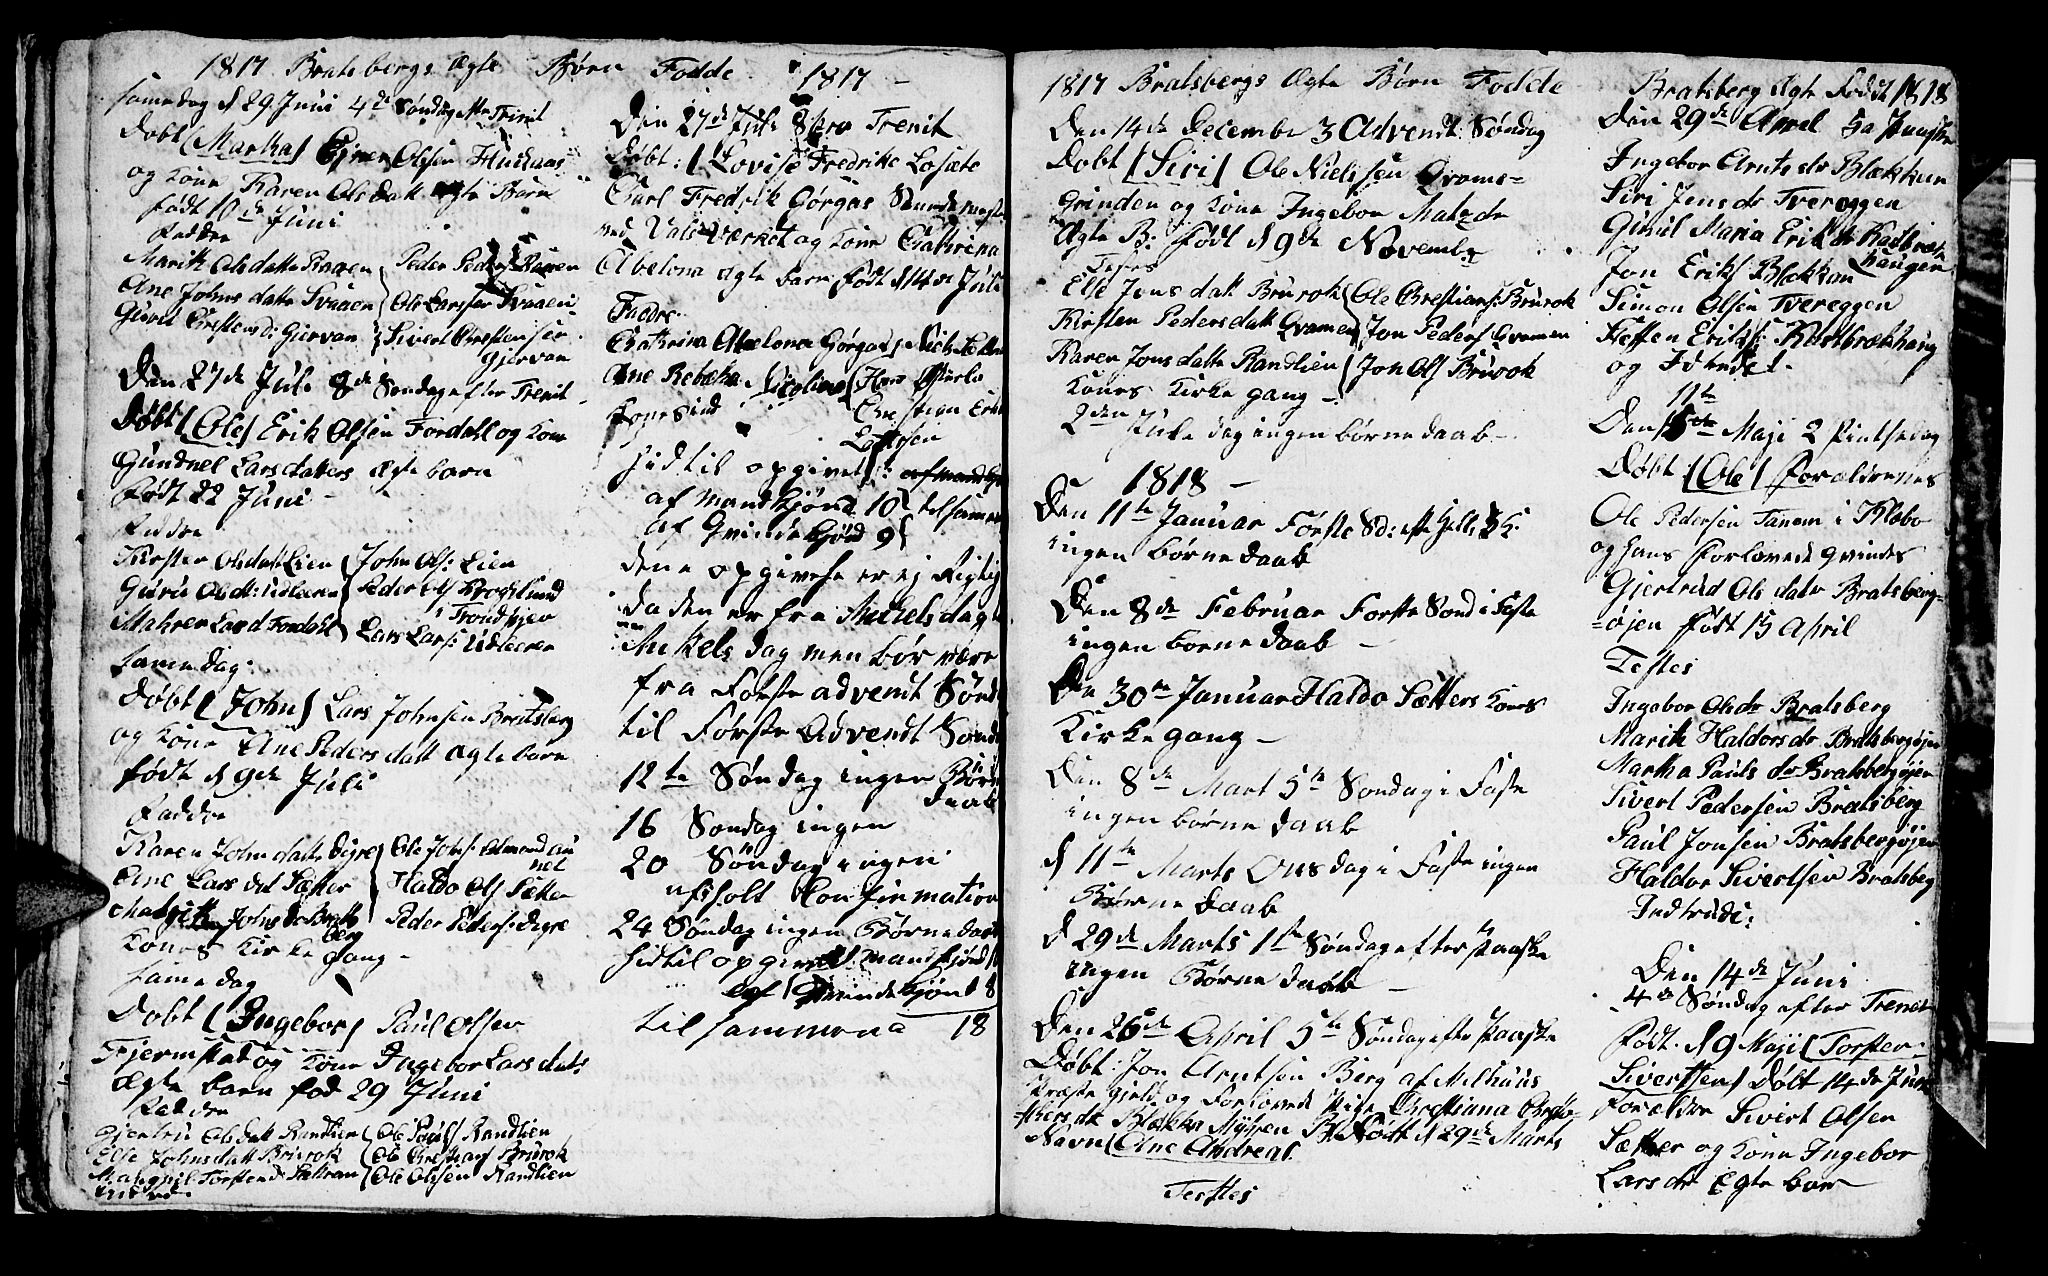 1817 Bratsbergs Ægte Børn Fødde 1817 -
samedag d 29 Juni 4de Søndag efter Trinit
Døbt [Martha] Ejner Olsen Huskaas
og Kone Karen Olsdatt ægte Barn
født 10de Juni
Faddre
Marit Olsdatte Raaen { Peder Peders Raaen
Ane Johnsdatte Svaaen { Ole Larssen Svaaen
Guril Crestensd: Gjervan { Sivert Chrestensen
Gjervan
Den 27de Juli 8de Søndag efter Trenit
Døbt [Ole] Erik Olsen Fordahl og Kone
Gundnel Larsdatters ægte barn
Født 22 Juni -
Faddre
Kirsten Olsdat Lien { John Ols: Lien
Guru Olsdt: Udleeren { Peder Ols Krogslund
i Trondhjem
Mahren Larsd Fordahl { Lars Lars: Udleeren
samedag:
Døbt [John] Lars Johnsen Bratsberg
og Kone Ane Pedersdatt ægte barn
født d 9de Juli
Faddre
Karen Johnsdatte Digre { Ole Johs: Almond au
net
Ane Larsdat Sætter { Haldo Ols Setter
Johnsdr Brats
berg { Peder Peders: Digre
Kones Kirke gang -
samedag
Døbt [Ingebor] Paul Olsen
Fjermstad og Kone Ingebor Larsdats
Ægte barn fød 29 Juni
Faddre
Gjertru Olsdatt Randlien { Ole Pauls Randlien
Else Johnsdatt Brurok { Ole Chrestians Brurok
Torstend Sættran { Ole Olssen Randlien
Den 27de Juli 8 Trenit
Døbt: [Lovise Fredrike Losete
Carl Fredrik Gørgas
ved Vals Værket og Kone Cathrina
Abelona ægte barn født d 14de Juli
Faddre
Cathrina Abelona Gørgas
Ane Rebeka Nicoline { Hans
Chrestian Erik
Larssen
hidtil opgivet
af Mandkjønd 10 { tilsamen
af Qvindekjønd 9 {
denne opgivelse er ej Rigtig
da den er fra Michelsdag til
Mikelsdag men bør være
fra Første advendt Sønd
til Første Advendt Sønd
12te Søndag ingen Børne
daab
16 Søndag ingen
20 Søndag ingen
holt Confirmation
24 Søndag ingen Børnedaab
hidtil opgivet Mandkjønd 10
af Qvindekjønd 8
til sammen 18
1817 Bratsbergs Ægte Børn Fødde
Den 14de December 3 Advent Søndag
Døbt [Siri] Ole Nielssen Qvams=
Grinden og Kone Ingebor
Ægte B: født d 9de November
Testes
Else Jonsdatt Brurok { Ole Crestians: Brurok
Kirsten Pedersdatt Qvamen { Jon Peders Qvamen
Karen Jonsdatte Randlien { Jon Ols Brurok
Kones Kirke gang -
2den Juledag ingen børne daab -
1818 -
Den 11te Januar Første Sd: efter Hell: 3 K:
ingen børne daab
Den 8de Februar Første Sønd i Faste
ingen børne daab -
Den 30te Januar Haldo Sætters Kones
Kirke gang -
Den 8de Mart 5te Søndag i Faste
ingen børne daab
d 11te Marts Onsdag i Faste ingen
Børne daab
d 29de Marts 1ste Søndag efter Paaske
ingen Børne daab
Den 26de April 5te Søndag efter Paaske
Døbt: Jon Arntsen Berg af Melhuus
Præste gjeld og Forlovede Pige Chrestiana Christo=
fersdr Blækken B: Født d 29de Marts
Navn [Ane Andrea]
Testes
Bratsberg Ægte Fødde 1818
Den 29de April 5a Paaske
Ingebor Arntsdr Blækken
Siri Jensdr Tvereggen
Guril Maria Eriksdr Kastbræk
haugen
Jon Eriks: Blekkan
Simon Olsen Tvereggen
Steffen Eriks: Kastbrækhaug
og Indtrudt.
11te
Den Maji 2 Pintsedag
Døbt: [Ole] Forældrenes
Ole Pedersen Tanem i Klæbo
og hans Forlovede qvindes
Gjertrud Olsdatr Bratsberg=
=øjen født 15 April
Testes
Ingebor Olsdr Bratsberg
Marit Haldorsdr Bratsbergøjen
Martha Paulsdr Bratsbergøjen
Sivert Pedersen Bratsberg
Paul Jonsen Bratsbergøjen
Haldor Sivertsen Bratsberg
Indtrudt:
Den 14de Juni
4de Søndag efter Trenit
Født d 9 Maji [Torsten
Sivertsen] Døbt 14de Juni
Forældre Sivert Olsen
Sætter og Kone Ingebor
Larsdr Egte barn